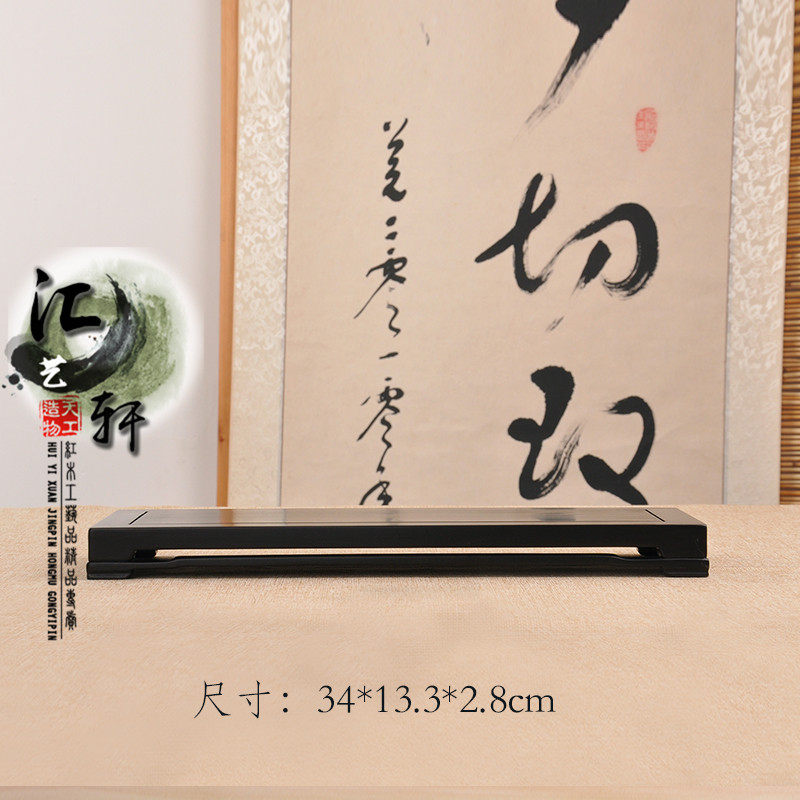 切
二零一零年
汇艺轩
天工造物
紅木工藝品精品專賣
HUI YI XUAN JINGPIN HONGMU GONGYIPIN
尺寸：34*13.3*2.8cm